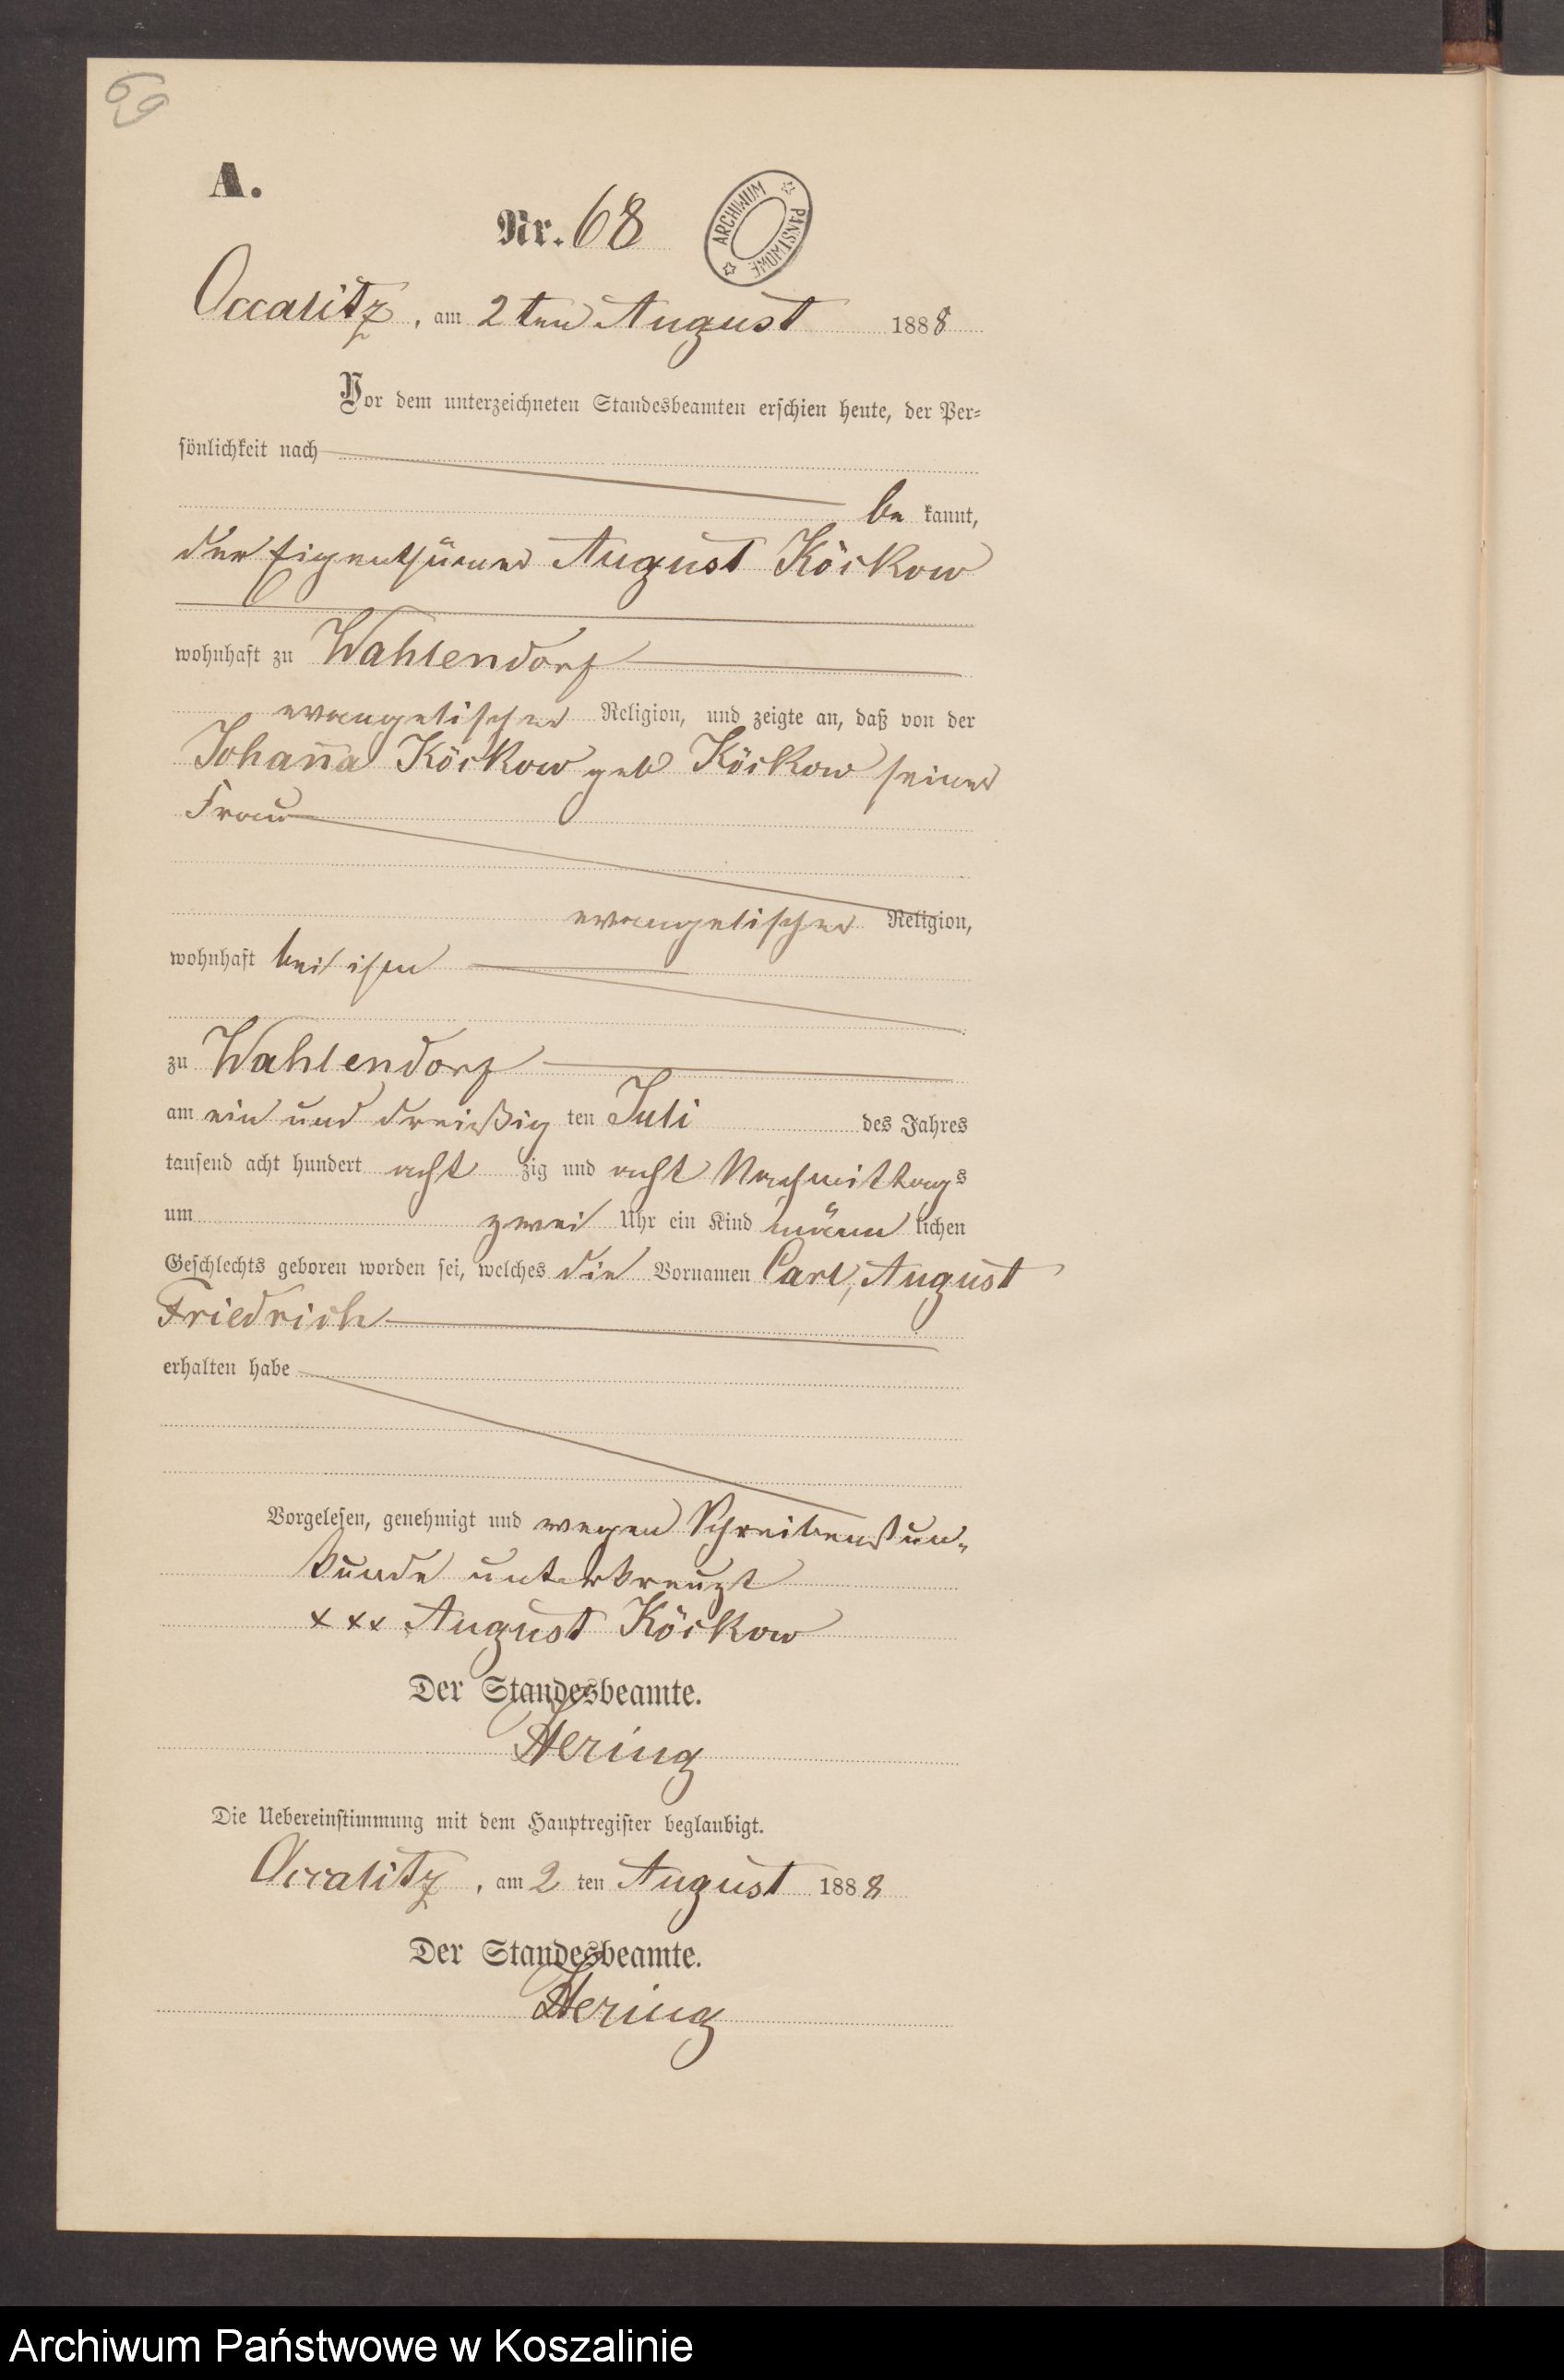 69
A.
Nr. 68
ARCHIWUM PAŃSTWOWE
Occalitz, am 2ten August 1888
Vor dem unterzeichneten Standesbeamten erschien heute, der Per-
sönlichkeit nach
be kannt,
der Eigenthümer August Köckow
wohnhaft zu Wahlendorf
evangelischer Religion, und zeigte an, daß von der
Johanna Köckow geb Köckow seiner
Frau
evangelischer Religion,
wohnhaft bei ihm
zu Wahlendorf
am ein und dreißig ten Juli des Jahres
tausend acht hundert acht zig und acht Nachmittags
um zwei Uhr ein Kind männ lichen
Geschlechts geboren worden sei, welches die Vornamen Carl, August
Friedrich
erhalten habe
Vorgelesen, genehmigt und wegen Schreibensun-
kunde unterkreuzt
xxx August Köckow
Der Standesbeamte.
Hering
Die Uebereinstimmung mit dem Hauptregister beglaubigt.
Occalitz, am 2 ten August 1888
Der Standesbeamte.
Hering
Archiwum Państwowe w Koszalinie